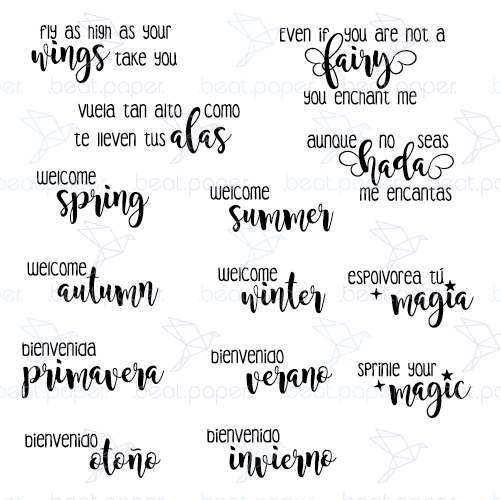 fly as high as your
wings take you
Even if you are not a
fairy
you enchant me
vuela tan alto como
te lleven tus alas
aunque no seas
hada
me encantas
welcome
spring
welcome
summer
welcome
autumn
welcome
winter
espolvorea tú
magia
bienvenida
primavera
bienvenido
verano
sprinle your
magic
bienvenido
otoño
bienvenido
invierno
.beat.paper.